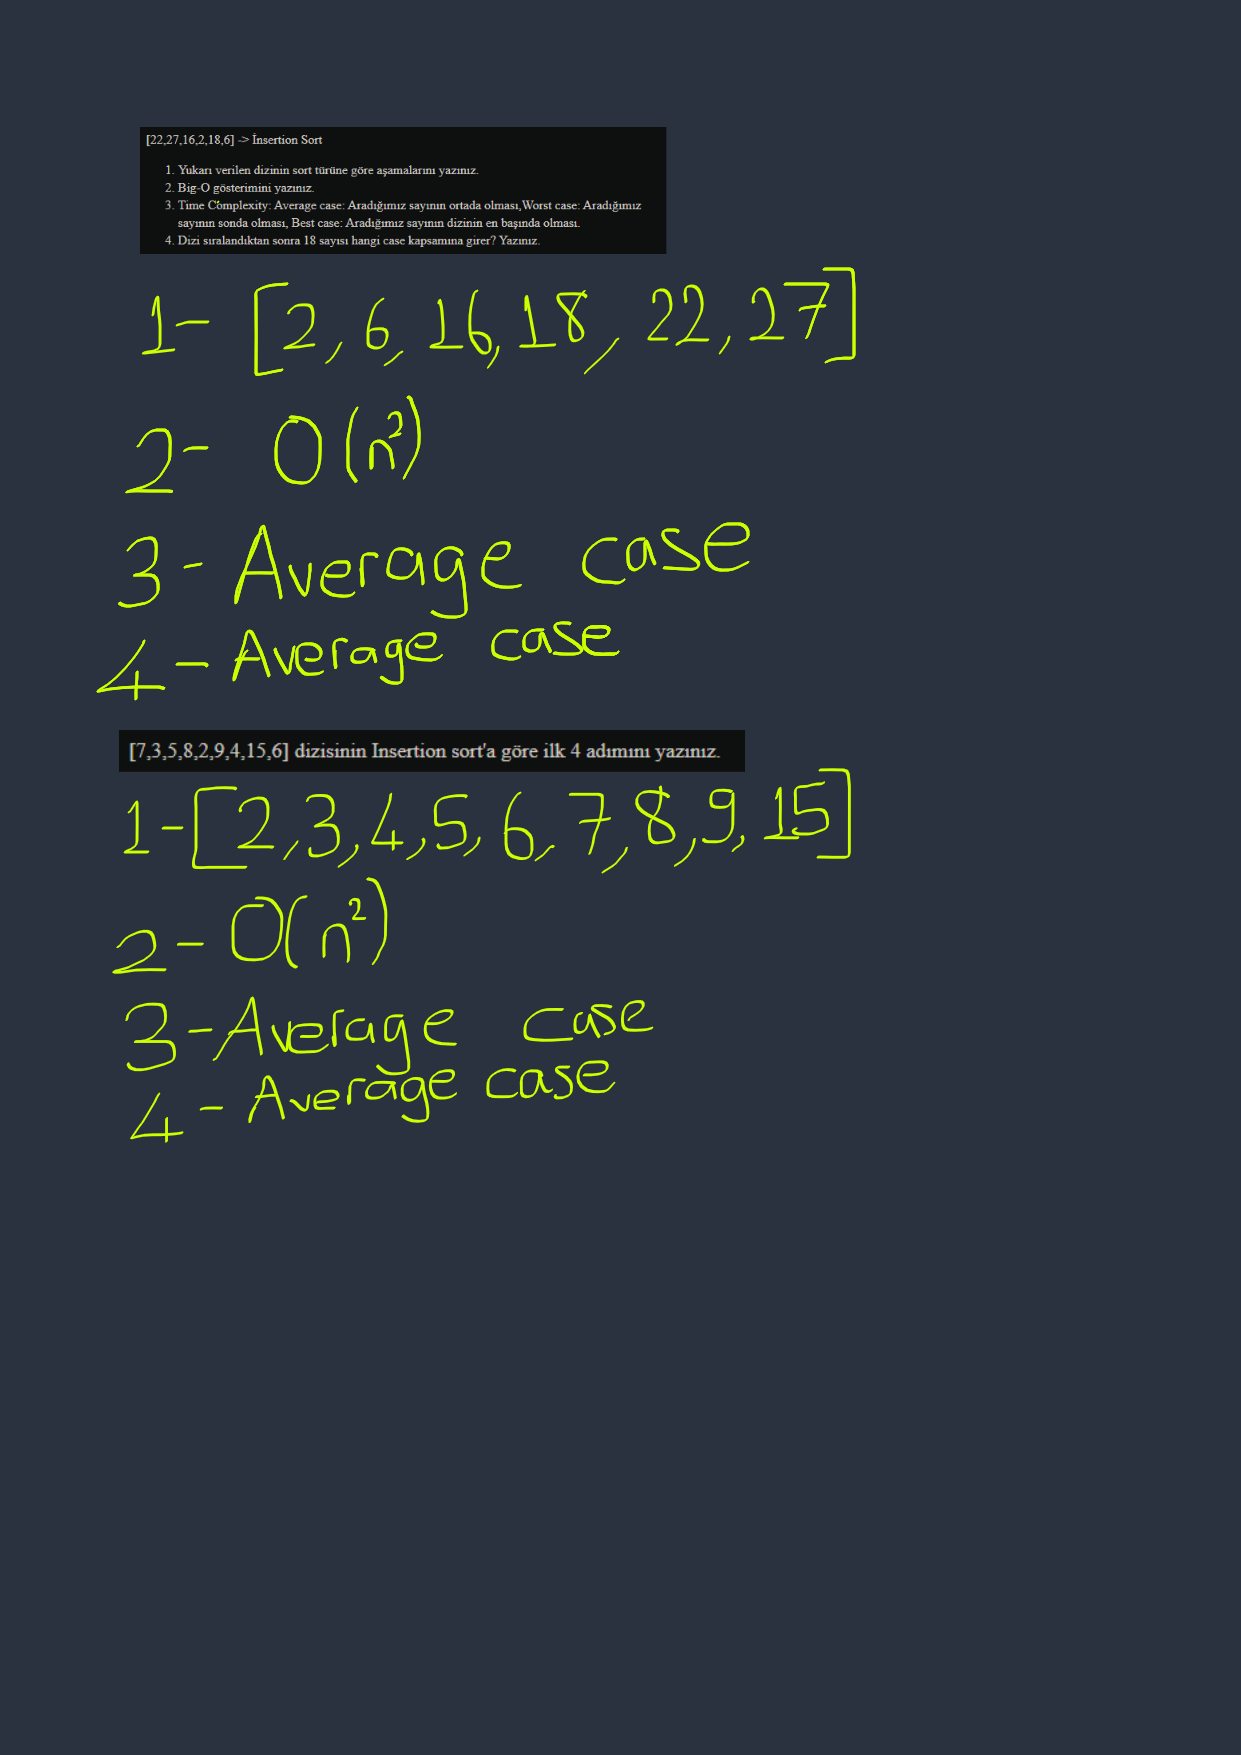 [22,27,16,2,18,6] -> İnsertion Sort
1. Yukarı verilen dizinin sort türüne göre aşamalarını yazınız.
2. Big-O gösterimini yazınız.
3. Time Complexity: Average case: Aradığımız sayının ortada olması,Worst case: Aradığımız
sayının sonda olması, Best case: Aradığımız sayının dizinin en başında olması.
4. Dizi sıralandıktan sonra 18 sayısı hangi case kapsamına girer? Yazınız.
1- [2, 6, 16, 18, 22, 27]
2- O(n²)
3- Average case
4- Average case
[7,3,5,8,2,9,4,15,6] dizisinin Insertion sort'a göre ilk 4 adımını yazınız.
1-[2,3,4,5,6,7,8,9,15]
2- O(n²)
3-Average case
4- Average case